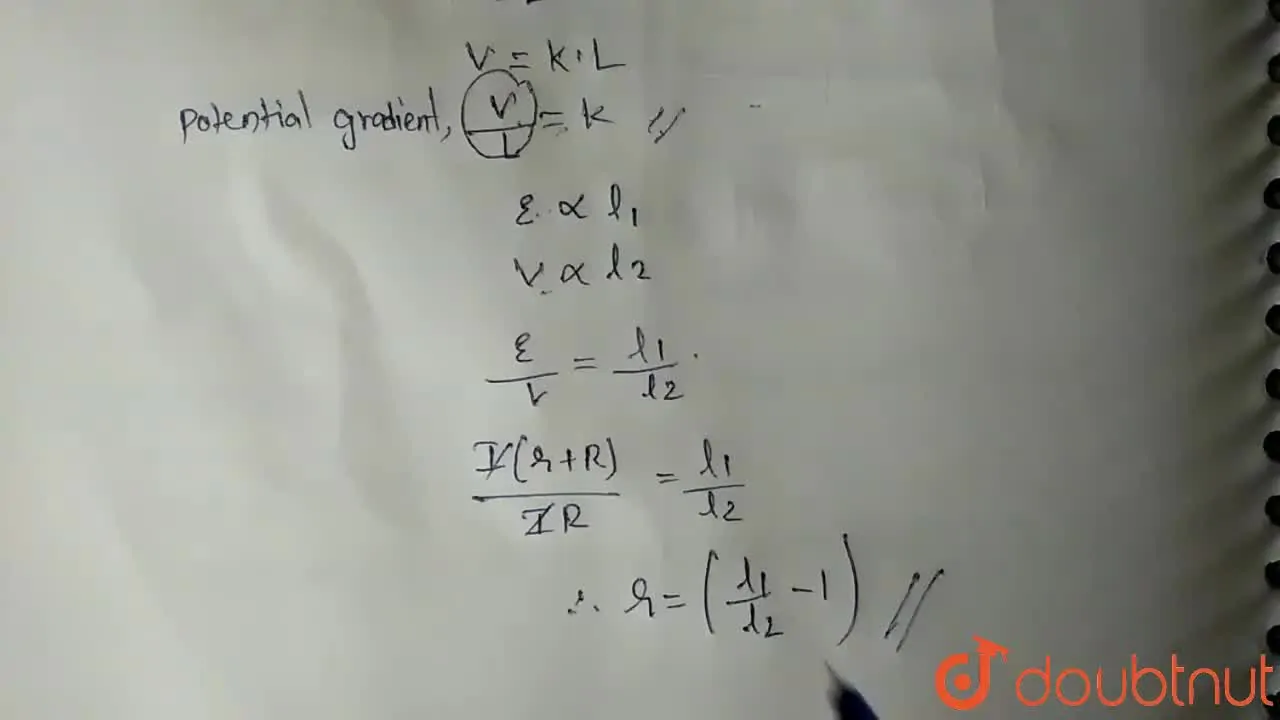 V = K.L
Potential gradient, V/L = K //
ε ∝ l1
V ∝ l2
ε/V = l1/l2
I(r+R)/IR = l1/l2
∴ r = (l1/l2 - 1) //
doubtnut